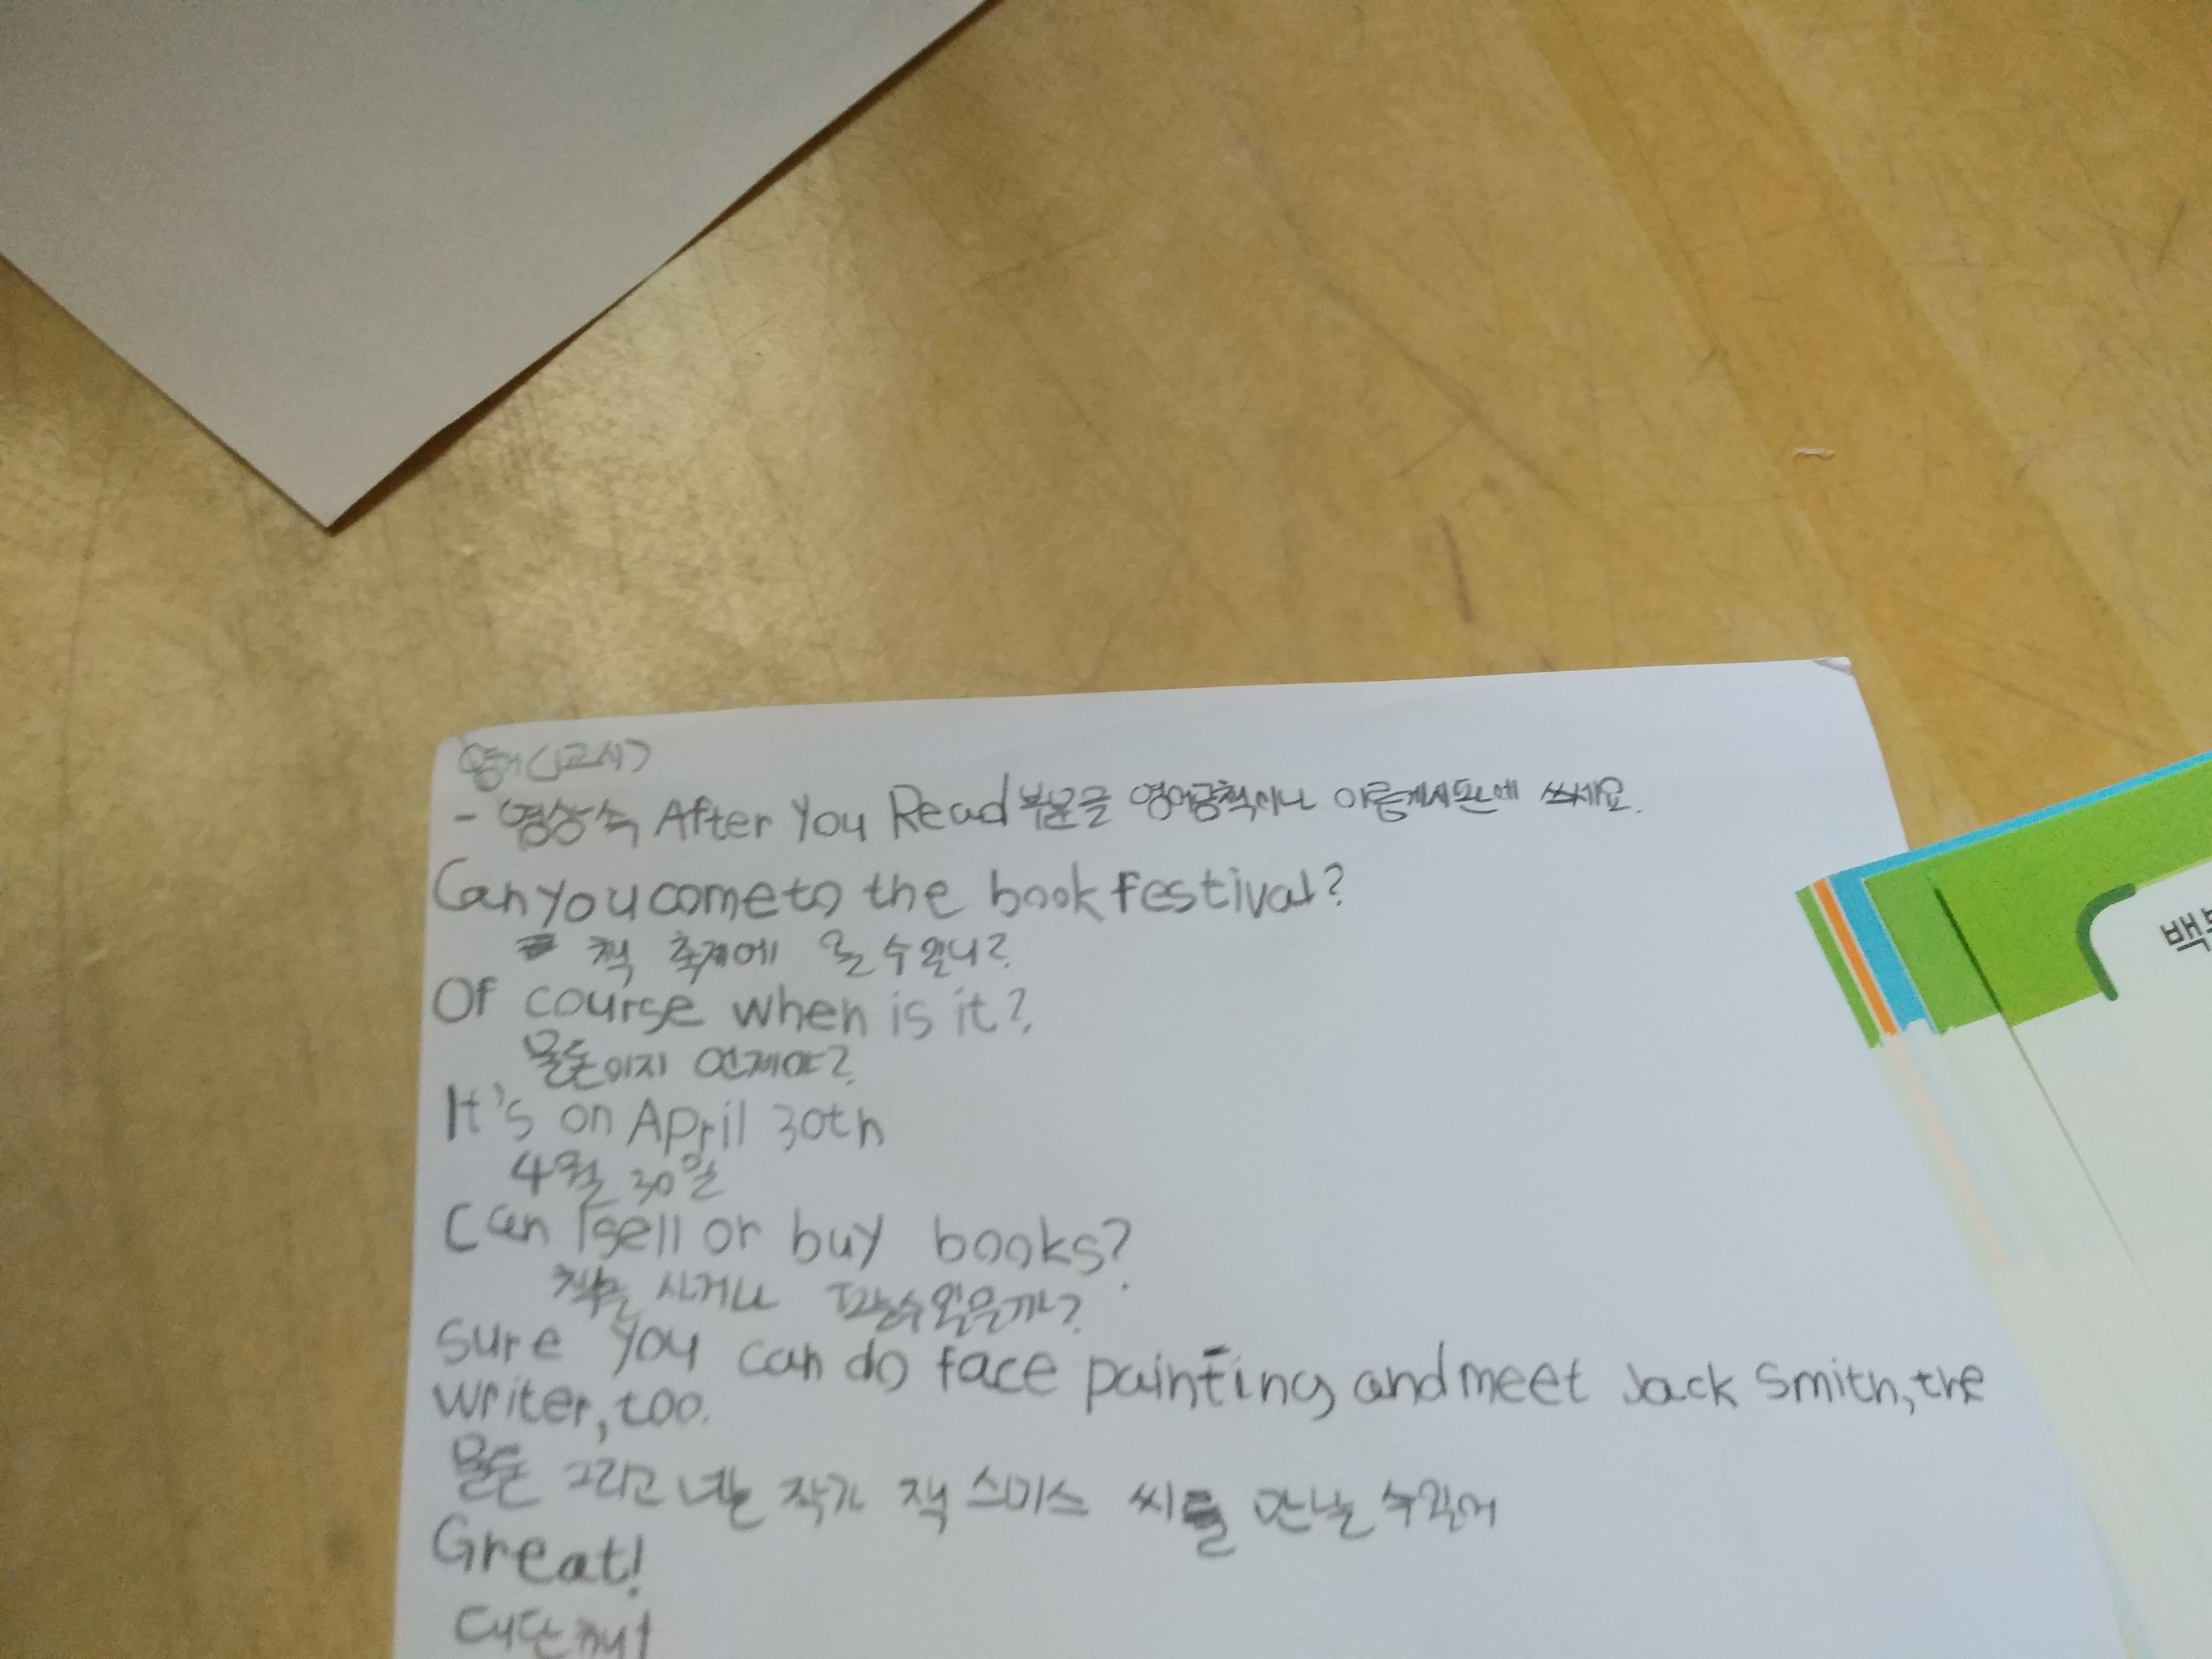 영어(1교시)
- 영상속 After You Read 부분글 영어공책이나 이름게시판에 쓰세요.
Can you come to the book festival?
책 축제에 올 수 있니?
Of course when is it?
물론이지 언제야?
It's on April 30th
4월 30일
Can I sell or buy books?
책을 사거나 팔 수 있을까?
sure you can do face painting and meet Jack Smith, the
writer, too.
물론 그리고 너는 작가 잭 스미스 씨를 만날 수 있어
Great!
대단해!